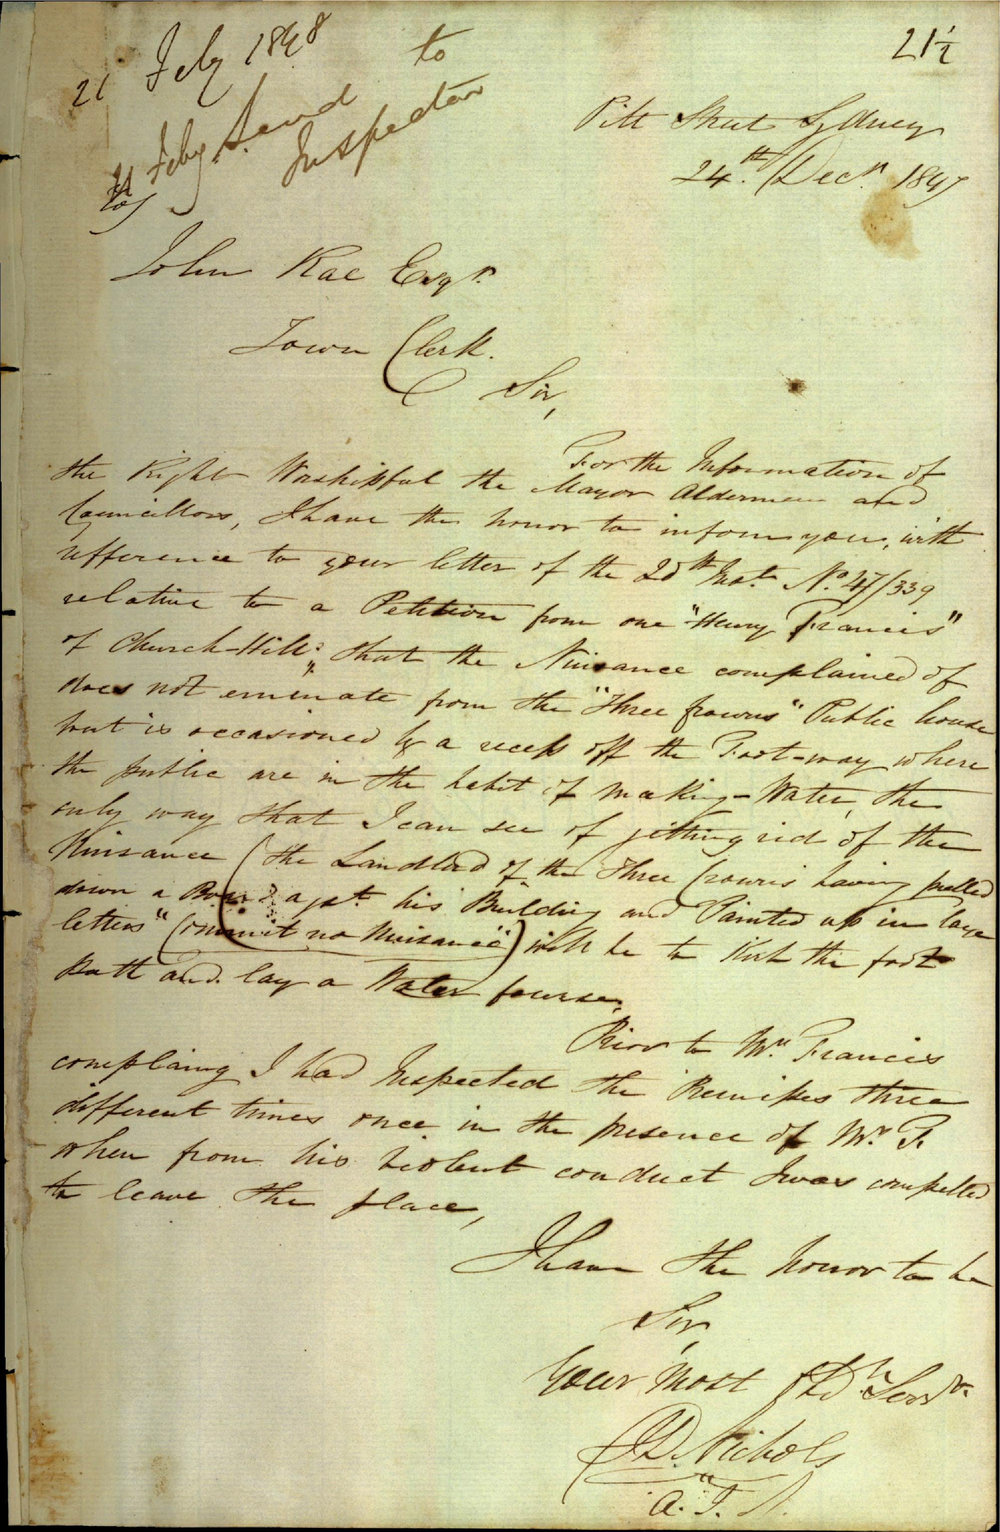 21½
21 Feby 1848
21 Feby Send to
Inspector
Pitt Street Sydney
24th Decr 1847
John Rae Esqr
Town Clerk.
Sir,
For the Information of
the Right Worshipful the Mayor Aldermen and
Councillors, I have the honor to inform you, with
refference to your letter of the 20th Inst. No 47/339
relative to a Petition from one "Henry Francis"
of Church-Hill, that the Nuisance complained of
does not eminate from the "Three Crowns" Public house
but is occasioned by a recess off the Foot-way where
the public are in the habit of making-Water, the
only way that I can see of getting rid of the
Nuisance (the Landlord of the Three Crowns having
down a agst his Building and Painted up in large
letters "Commit no Nuisance") will be to Kirb the foot
Path and lay a Water Course,
Prior to Mr Francis
complaing I had Inspected the Premises three
different times once in the presence of Mr F.
when from his violent conduct I was compelled
to leave the place,
I have the honor to be
Sir,
Your Most Obdt Servt
Nichols